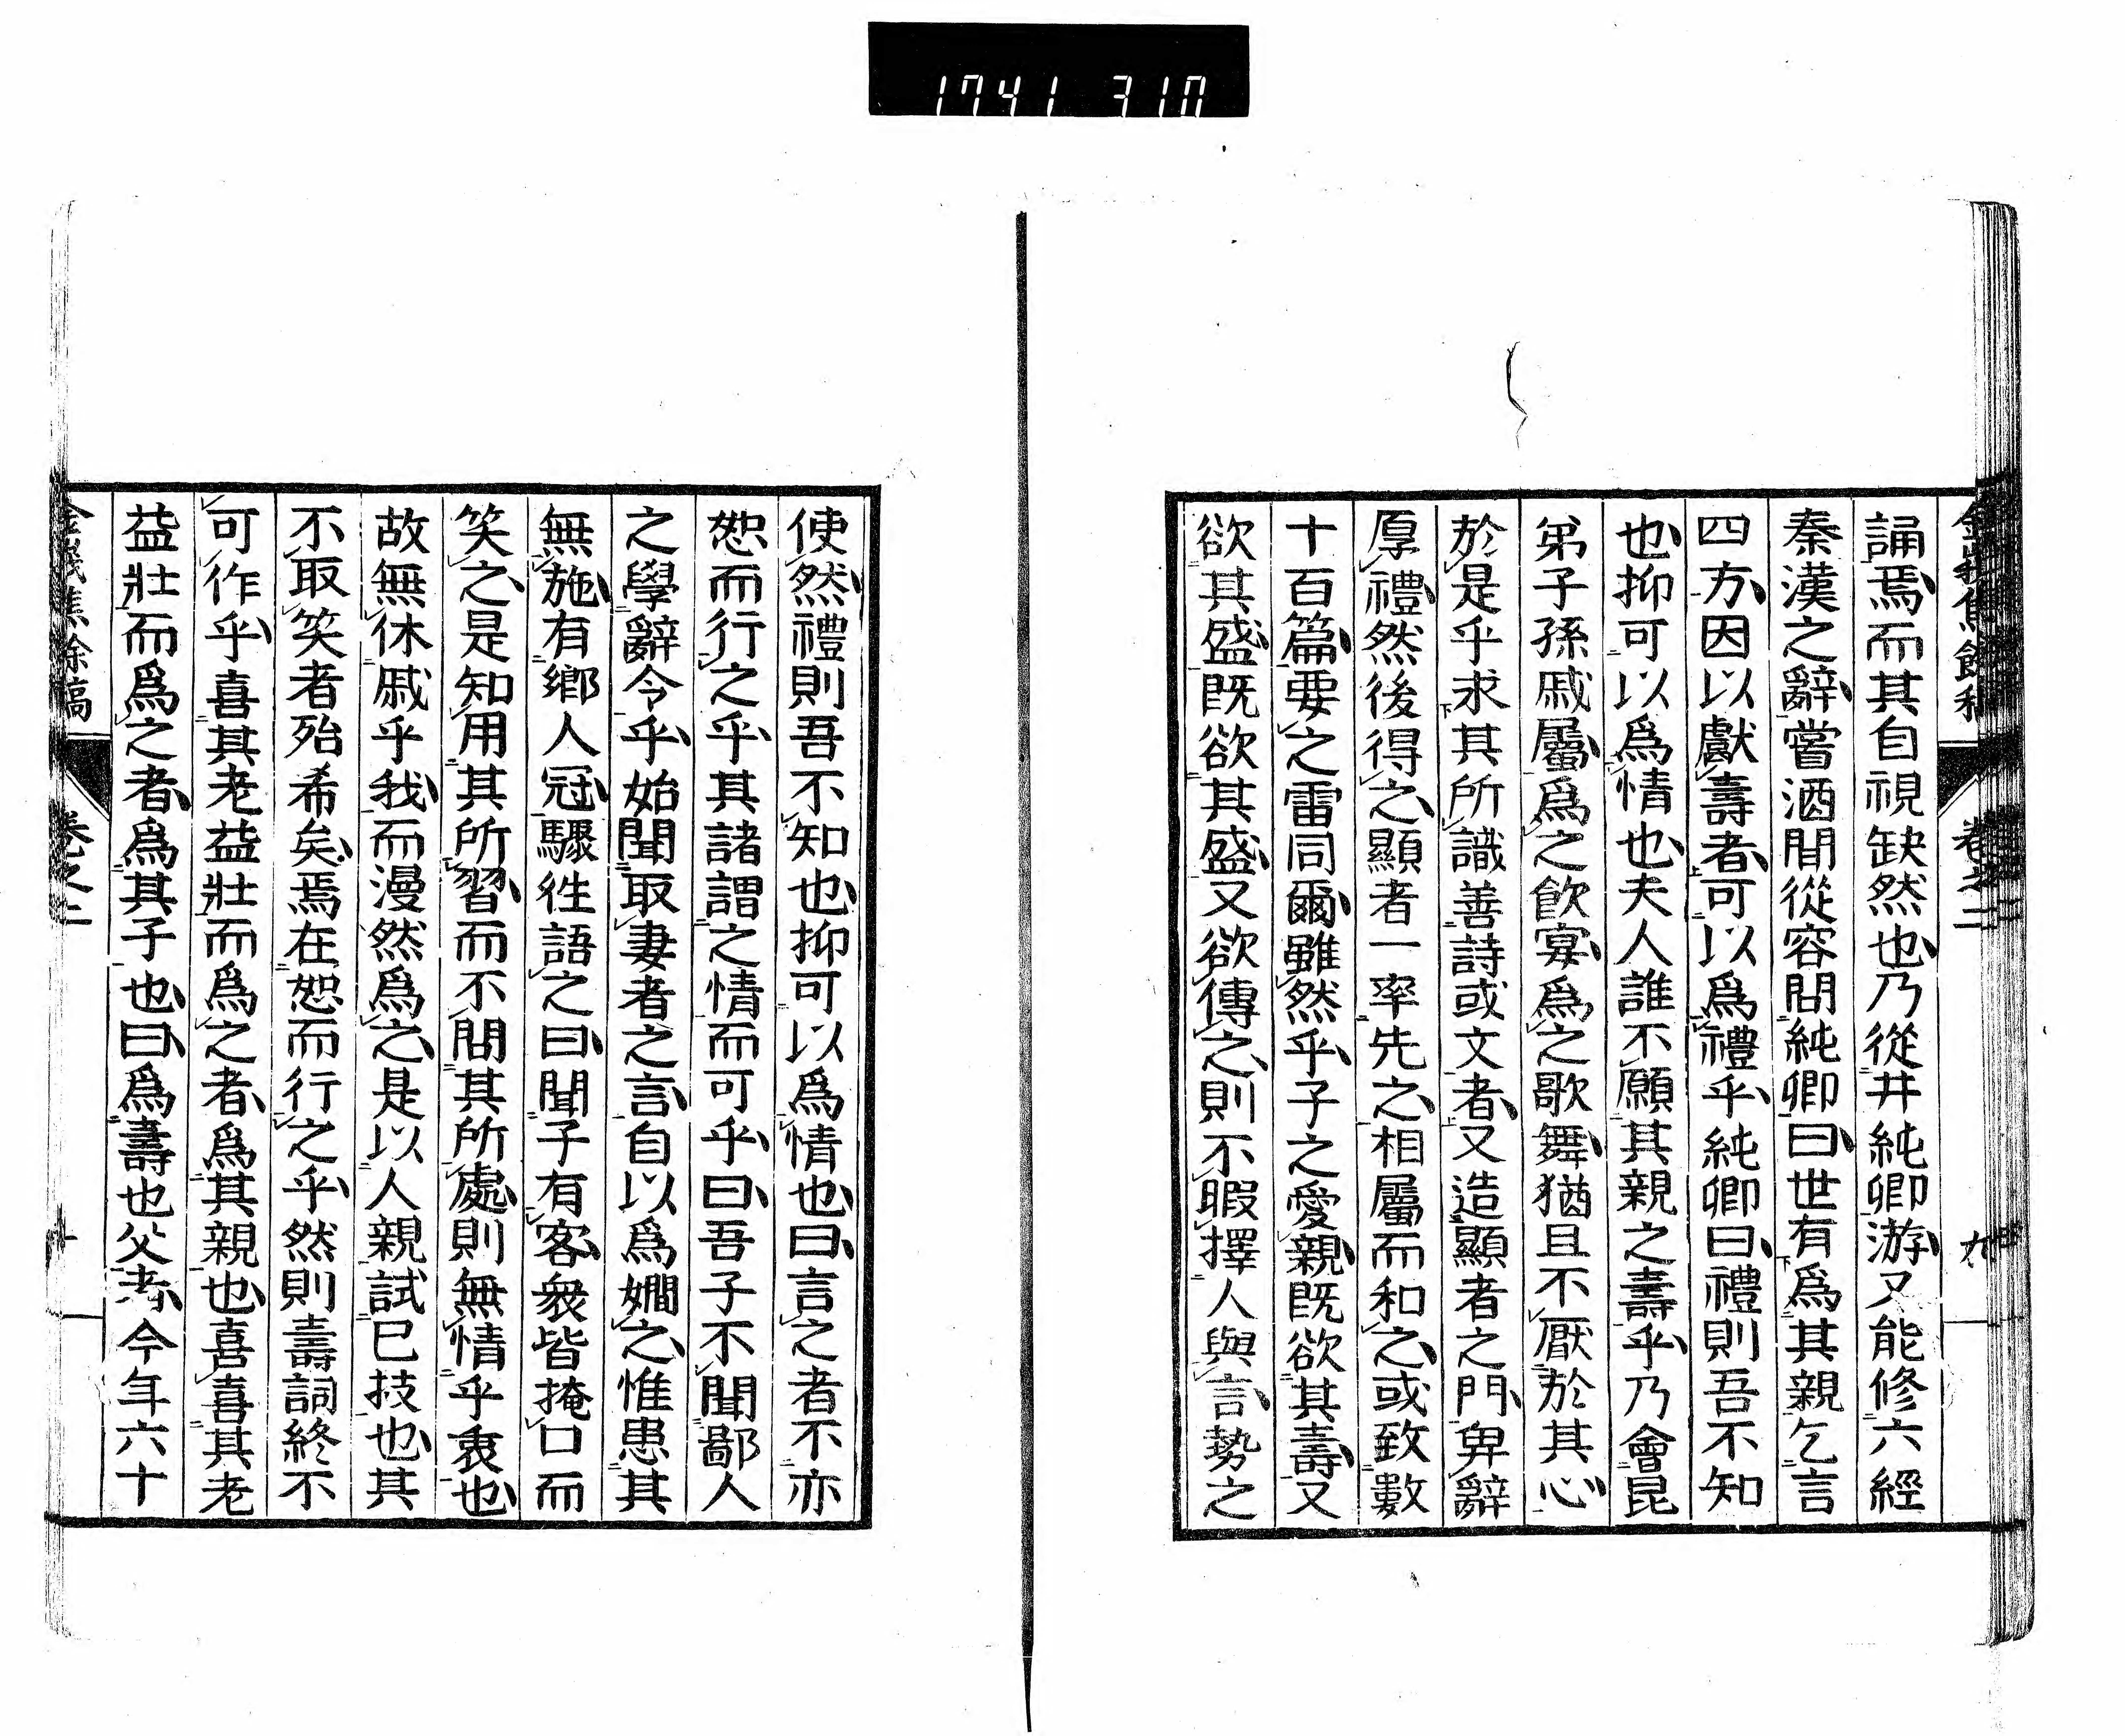 1741 310
卷之二
九
誦焉而其自視缺然也乃從井純卿游又能修六經
秦漢之辭嘗酒間從容問純卿曰世有爲其親乞言
四方因以獻壽者可以爲禮乎純卿曰禮則吾不知
也抑可以爲情也夫人誰不願其親之壽乎乃會昆
弟子孫戚屬爲之飮宴爲之歌舞猶且不厭於其心
於是乎求其所識善詩或文者又造顯者之門卑辭
厚禮然後得之顯者一率先之相屬而和之或致數
十百篇要之雷同爾雖然乎子之愛親既欲其壽又
欲其盛既欲其盛又欲傳之則不暇擇人與言勢之
使然禮則吾不知也抑可以爲情也曰言之者不亦
恕而行之乎其諸謂之情而可乎曰吾子不聞鄙人
之學辭令乎始聞取妻者之言自以爲嫺之惟患其
無施有鄉人冠驟徃語之曰聞子有客衆皆掩口而
笑之是知用其所習而不問其所處則無情乎衷也
故無休戚乎我而漫然爲之是以人親試巳技也其
不取笑者殆希矣焉在恕而行之乎然則壽詞終不
可作乎喜其老益壯而爲之者爲其親也喜喜其老
益壯而爲之者爲其子也曰爲壽也父今年六十
卷之二